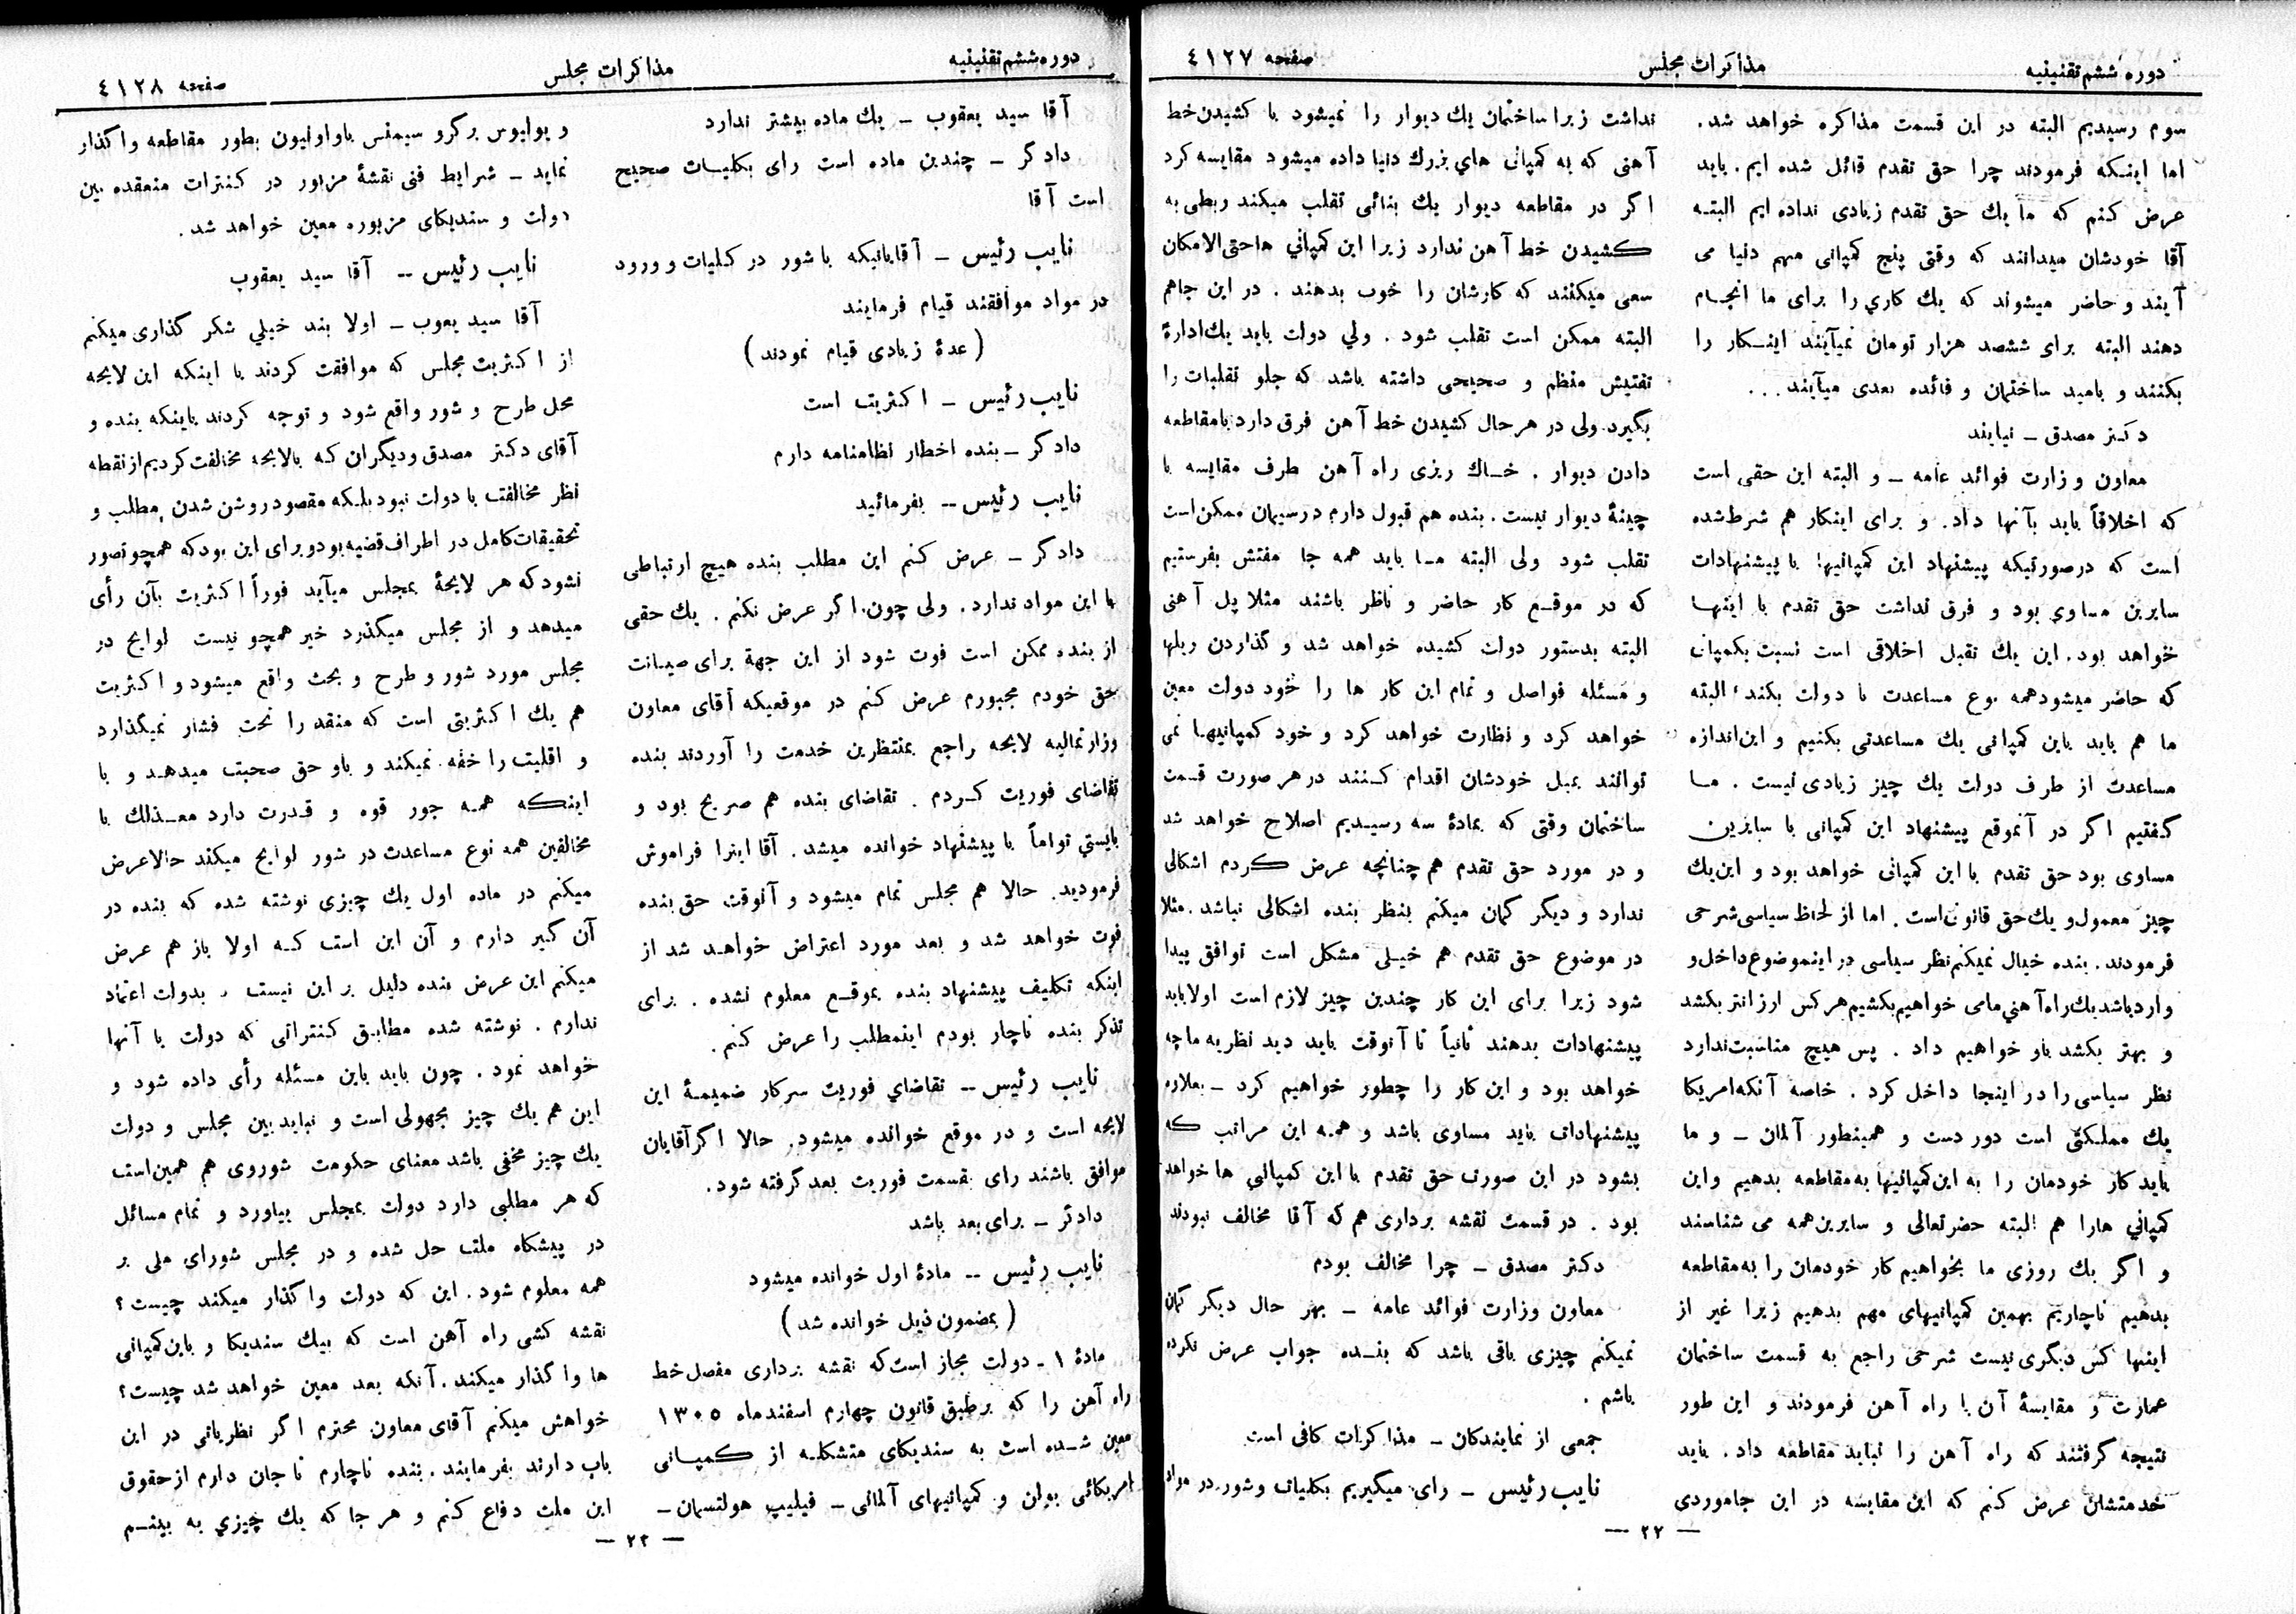 دوره ششم تقنینیه
مذاکرات مجلس
صفحه ٤١٢٧
سوم رسیدیم البته در این قسمت مذاکره خواهد شد.
اما اینکه فرمودند چرا حق تقدم قائل شده ایم. باید
عرض کنم که ما یك حق تقدم زیادی نداده ایم البته
آقا خودشان میدانند که وقتی پنج کمپانی مهم دنیا می
آیند و حاضر میشوند که یك کاري را برای ما انجام
دهند البته برای ششصد هزار تومان نمیآیند اینکار را
بکنند و بامید ساختمان و فائده بعدی میآیند . . .
دکتر مصدق ــ نیایند
معاون وزارت فوائد عامه ــ و البته این حقی است
که اخلاقاً باید بآنها داد. و برای اینکار هم شرط شده
است که درصورتیکه پیشنهاد این کمپانیها با پیشنهادات
سایرین مساوي بود و فرق نداشت حق تقدم با اینها
خواهد بود. این یك تقبل اخلاقی است نسبت بکمپانی
که حاضر میشود همه نوع مساعدت با دولت بکند البته
ما هم باید باین کمپانی یك مساعدتی بکنیم و این اندازه
مساعدت از طرف دولت یك چیز زیادی نیست . ما
گفتیم اگر در آنموقع پیشنهاد این کمپانی با سایرین
مساوی بود حق تقدم با این کمپانی خواهد بود و این یك
چیز معمول و یك حق قانونی است. اما از لحاظ سیاسی شرحی
فرمودند. بنده خیال نمیکنم نظر سیاسی در اینموضوع داخل و
وارد باشد یك راه آهني ما می خواهیم بکشیم هر کس ارزانتر بکشد
و بهتر بکشد باو خواهیم داد . پس هیچ مناسبت ندارد
نظر سیاسی را در اینجا داخل کرد . خاصه آنکه امریکا
یك مملکتی است دور دست و همینطور آلمان ــ و ما
باید کار خودمان را به این کمپانیها به مقاطعه بدهیم و این
کمپاني هارا هم البته حضرتعالی و سایرین همه می شناسند
و اگر یك روزی ما بخواهیم کار خودمان را به مقاطعه
بدهیم ناچاریم بهمین کمپانیهای مهم بدهیم زیرا غیر از
اینها کس دیگری نیست شرحی راجع به قسمت ساختمان
عمارت و مقایسهٔ آن با راه آهن فرمودند و این طور
نتیجه گرفتند که راه آهن را نباید مقاطعه داد. باید
خدمتشان عرض کنم که این مقایسه در این جا موردی
نداشت زیرا ساختمان یك دیوار را نمیشود با کشیدن خط
آهنی که به کمپانی هاي بزرك دنیا داده میشود مقایسه کرد
اگر در مقاطعه دیوار یك بنائی تقلب میکند ربطی به
کشیدن خط آهن ندارد زیرا این کمپاني ها حتی الامکان
سعی میکنند که کارشان را خوب بدهند . در این جا هم
البته ممکن است تقلب شود . ولي دولت باید یك ادارهٔ
تفتیش منظم و صحیحی داشته باشد که جلو تقلبات را
بگیرد ولی در هر حال کشیدن خط آهن فرق دارد با مقاطعه
دادن دیوار . خاك ریزی راه آهن طرف مقایسه با
چینهٔ دیوار نیست. بنده هم قبول دارم در سیمان ممکن است
تقلب شود ولی البته ما باید همه جا مفتش بفرستیم
که در موقع کار حاضر و ناظر باشند مثلا پل آهنی
البته بدستور دولت کشیده خواهد شد و گذاردن ریلها
و مسئله فواصل و تمام این کار ها را خود دولت معین
خواهد کرد و نظارت خواهد کرد و خود کمپانیها نمی
توانند بمیل خودشان اقدام کنند در هر صورت قسمت
ساختمان وقتی که بمادهٔ سه رسیدیم اصلاح خواهد شد
و در مورد حق تقدم هم چنانچه عرض کردم اشکالی
ندارد و دیگر گمان میکنم بنظر بنده اشکالی نباشد. مثلا
در موضوع حق تقدم هم خیلی مشکل است توافق پیدا
شود زیرا برای این کار چندین چیز لازم است اولا باید
پیشنهادات بدهند ثانیاً تا آنوقت باید دید نظریه ما چه
خواهد بود و این کار را چطور خواهیم کرد ــ بعلاوه
پیشنهادات باید مساوی باشد و همه این مراتب که
بشود در این صورت حق تقدم با این کمپانی ها خواهد
بود . در قسمت نقشه برداری هم که آقا مخالف نبودند
دکتر مصدق ــ چرا مخالف بودم
معاون وزارت فوائد عامه ــ بهر حال دیگر گمان
نمیکنم چیزی باقی باشد که بنده جواب عرض نکرده
باشم .
جمعی از نمایندگان ــ مذاکرات کافی است
نایب رئیس ــ رای میگیریم بکلیات و شور در مواد
— ٢٢ —
دوره ششم تقنینیه
مذاکرات مجلس
صفحه ٤١٢٨
آقا سید یعقوب ــ یك ماده بیشتر ندارد
دادگر ــ چندین ماده است رای بکلیات صحیح
است آقا
نایب رئیس ــ آقایانیکه با شور در کلیات و ورود
در مواد موافقند قیام فرمایند
(عدهٔ زیادی قیام نمودند)
نایب رئیس ــ اکثریت است
دادگر ــ بنده اخطار نظامنامه دارم
نایب رئیس ــ بفرمائید
دادگر ــ عرض کنم این مطلب بنده هیچ ارتباطی
با این مواد ندارد. ولی چون اگر عرض نکنم . یك حقی
از بنده ممکن است فوت شود از این جهة برای صیانت
حق خودم مجبورم عرض کنم در موقعیکه آقای معاون
وزارتمالیه لایحه راجع بمنتظرین خدمت را آوردند بنده
تقاضای فوریت کردم . تقاضای بنده هم صریح بود و
بایستي تواماً با پیشنهاد خوانده میشد. آقا اینرا فراموش
فرمودید. حالا هم مجلس تمام میشود و آنوقت حق بنده
فوت خواهد شد و بعد مورد اعتراض خواهد شد از
اینکه تکلیف پیشنهاد بنده بموقع معلوم نشده . برای
تذکر بنده ناچار بودم اینمطلب را عرض کنم.
نایب رئیس ــ تقاضاي فوریت سرکار ضمیمهٔ این
لایحه است و در موقع خوانده میشود. حالا اگر آقایان
موافق باشند رای بقسمت فوریت بعد گرفته شود.
دادگر ــ برای بعد باشد
نایب رئیس ــ مادهٔ اول خوانده میشود
(بمضمون ذیل خوانده شد)
مادهٔ ١ ــ دولت مجاز است که نقشه برداری مفصل خط
راه آهن را که برطبق قانون چهارم اسفندماه ١٣٠٥
معین شده است به سندیکای متشکله از کمپانی
امریکائی یولن و کمپانیهای آلمانی ــ فیلیپ هولتسمان ــ
و یولیوس برگرو سیمنس باواونیون بطور مقاطعه واگذار
نماید ــ شرایط فنی نقشهٔ مزبور در کنترات منعقده بین
دولت و سندیکای مزبوره معین خواهد شد.
نایب رئیس ــ آقا سید یعقوب
آقا سید یعوب ــ اولا بند خیلي شکر گذاری میکنم
از اکثریت مجلس که موافقت کردند با اینکه این لایحه
محل طرح و شور واقع شود و توجه کردند باینکه بنده و
آقای دکتر مصدق و دیگران که بالایحه مخالفت کردیم از نقطه
نظر مخالفت با دولت نبود بلکه مقصود روشن شدن مطلب و
تحقیقات کامل در اطراف قضیه بود و برای این بود که همچو تصور
نشود که هر لایحهٔ بمجلس میآید فوراً اکثریت بآن رأی
میدهد و از مجلس میگذرد خیر همچو نیست لوایح در
مجلس مورد شور و طرح و بحث واقع میشود و اکثریت
هم یك اکثریتی است که منقد را تحت فشار نمیگذارد
و اقلیت را خفه نمیکند و باو حق صحبت میدهد و با
اینکه همه جور قوه و قدرت دارد معذلك با
مخالفین همه نوع مساعدت در شور لوایح میکند حالا عرض
میکنم در ماده اول یك چیزی نوشته شده که بنده در
آن گیر دارم و آن این است که اولا باز هم عرض
میکنم این عرض بنده دلیل بر این نیست بدولت اعتماد
ندارم . نوشته شده مطابق کنتراتی که دولت با آنها
خواهد نمود . چون باید باین مسئله رأی داده شود و
این هم یك چیز مجهولی است و نباید بین مجلس و دولت
یك چیز مخفی باشد معنای حکومت شوروی هم همین است
که هر مطلبی دارد دولت بمجلس بیاورد و تمام مسائل
در پیشگاه ملت حل شده و در مجلس شورای ملی بر
همه معلوم شود. این که دولت واگذار میکند چیست؟
نقشه کشی راه آهن است که بیك سندیکا و باین کمپانی
ها واگذار میکند. آنکه بعد معین خواهد شد چیست؟
خواهش میکنم آقای معاون محترم اگر نظریاتی در این
باب دارند بفرمایند. بنده ناچارم تا جان دارم از حقوق
این ملت دفاع کنم و هر جا که یك چیزي به بینم
— ٢٣ —